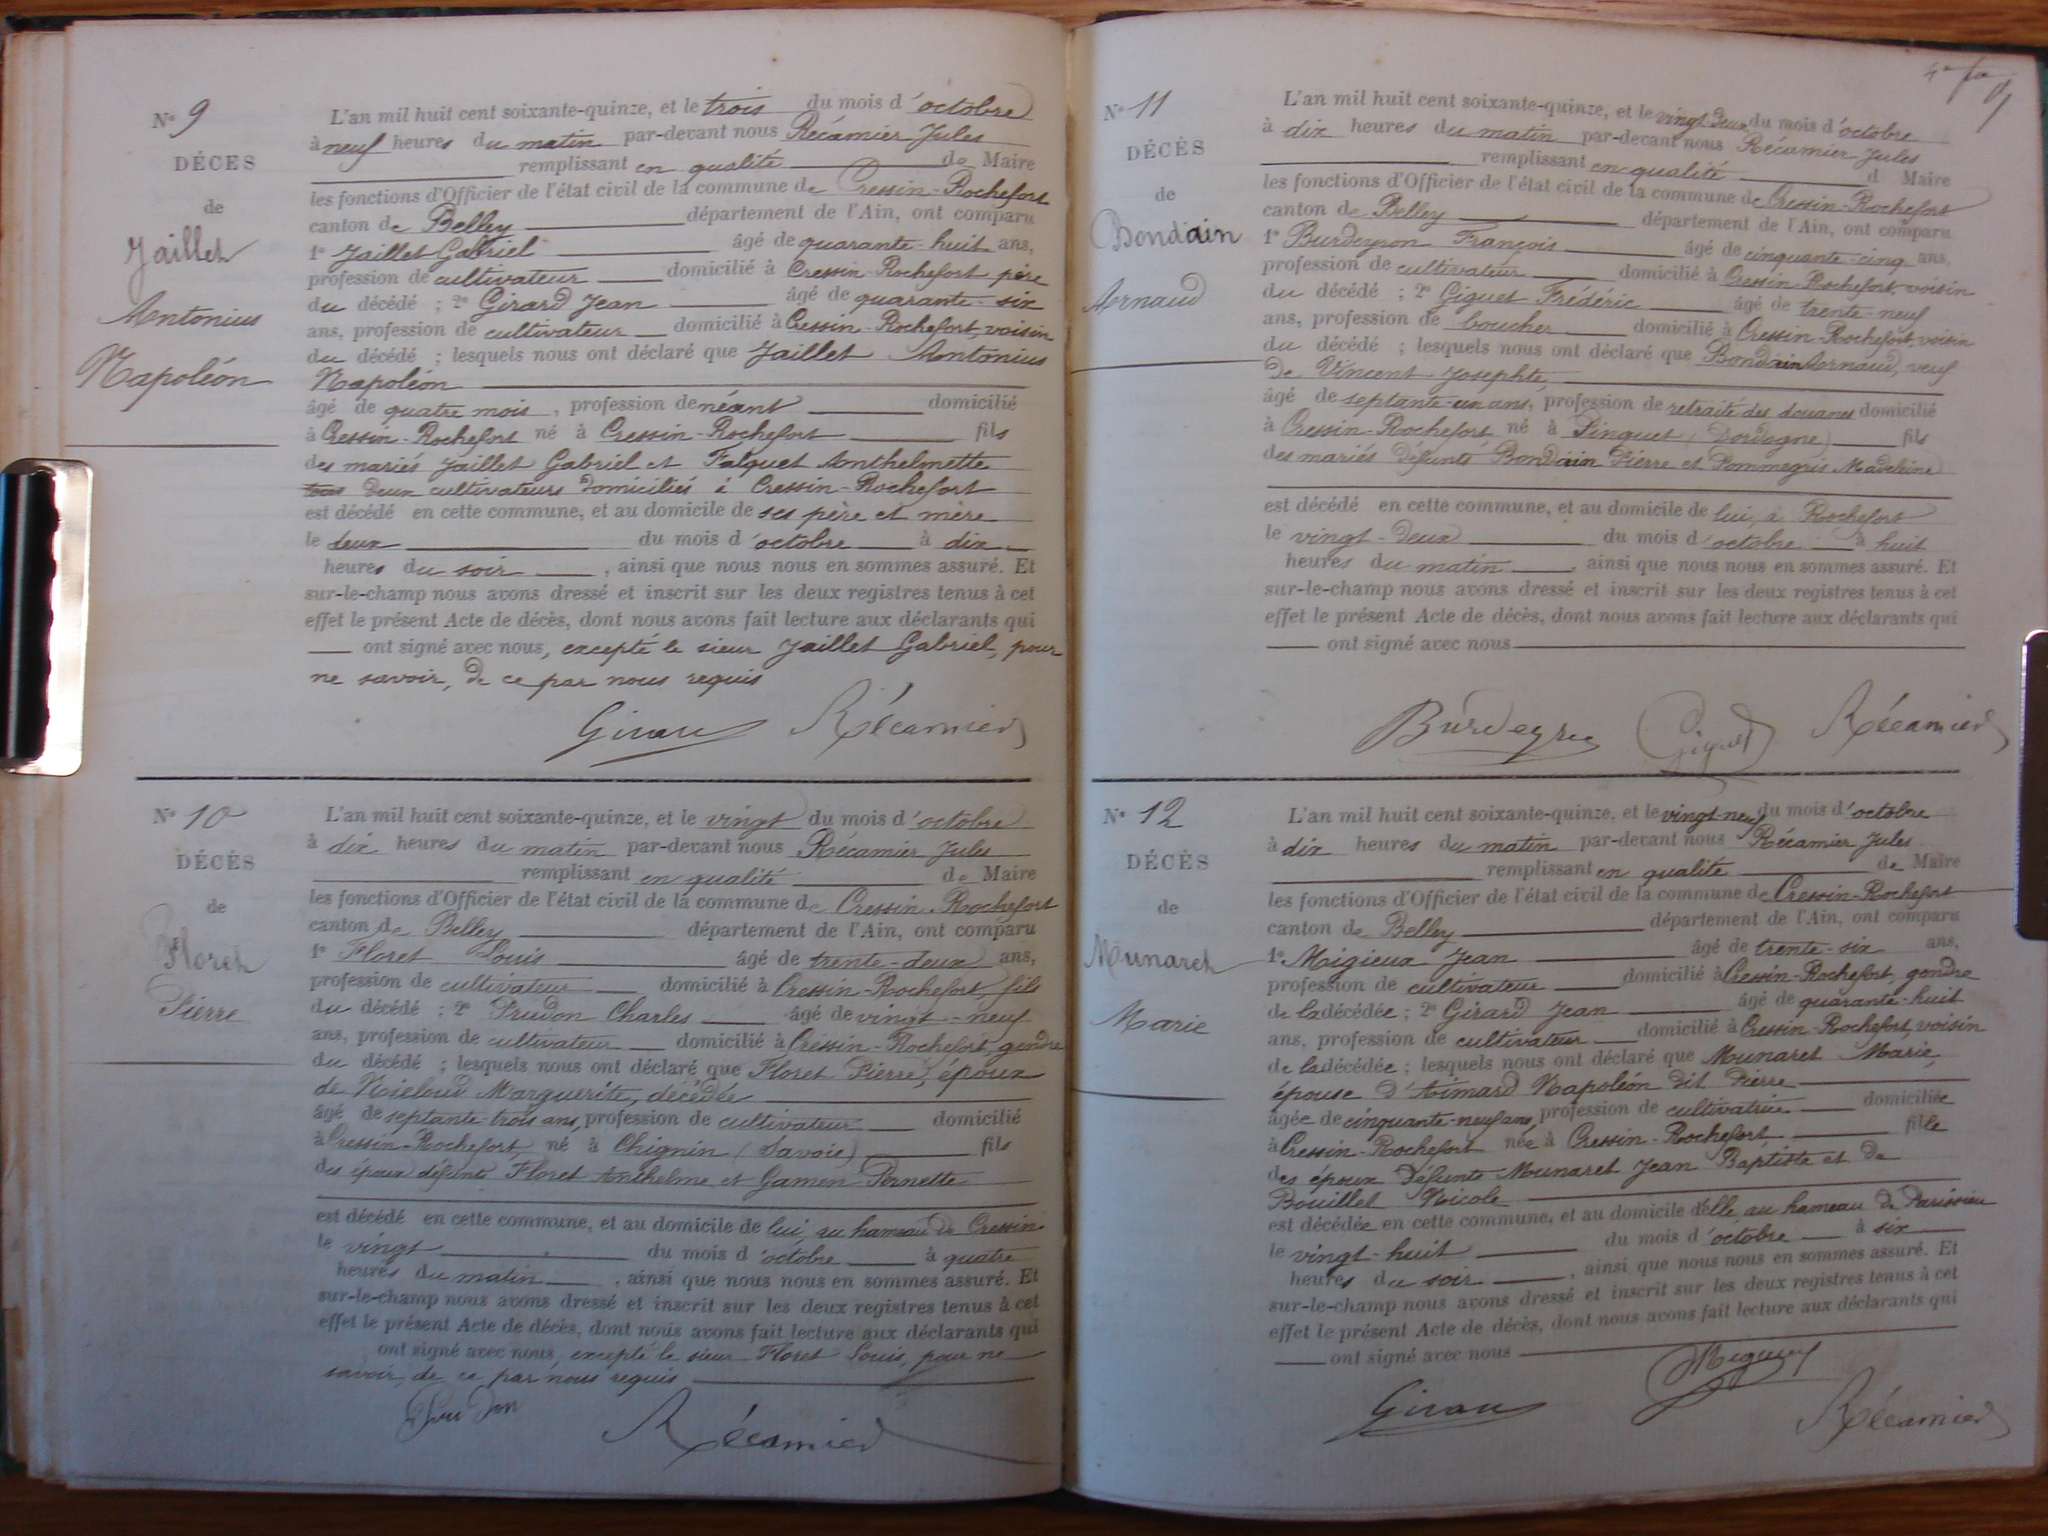 Nº 9
DÉCES
de
Jaillet
Antonius
Napoléon
L'an mil huit cent soixante-quinze, et le trois du mois d'octobre
à neuf heures du matin par-devant nous Récamier Jules
remplissant en qualité de Maire
les fonctions d'Officier de l'état civil de la commune de Cressin-Rochefort
canton de Belley département de l'Ain, ont comparu
1º Jaillet Gabriel âgé de quarante-huit ans,
profession de cultivateur domicilié à Cressin-Rochefort père
du décédé ; 2º Girard Jean âgé de quarante-six
ans, profession de cultivateur domicilié à Cressin-Rochefort, voisin
du décédé ; lesquels nous ont déclaré que Jaillet Antonius
Napoléon
âgé de quatre mois, profession de néant domicilié
à Cressin-Rochefort né à Cressin-Rochefort fils
des mariés Jaillet Gabriel et Falquet Anthelmette
tous deux cultivateurs domiciliés à Cressin-Rochefort
est décédé en cette commune, et au domicile de ses père et mère
le deux du mois d'octobre à dix
heures du soir, ainsi que nous nous en sommes assuré. Et
sur-le-champ nous avons dressé et inscrit sur les deux registres tenus à cet
effet le présent Acte de décès, dont nous avons fait lecture aux déclarants qui
ont signé avec nous, excepté le sieur Jaillet Gabriel, pour
ne savoir, de ce par nous requis
Girard Récamier
Nº 10
DÉCÈS
de
Floret
Pierre
L'an mil huit cent soixante-quinze, et le vingt du mois d'octobre
à dix heures du matin par-devant nous Récamier Jules
remplissant en qualité de Maire
les fonctions d'Officier de l'état civil de la commune de Cressin-Rochefort
canton de Belley département de l'Ain, ont comparu
1º Floret Louis âgé de trente-deux ans,
profession de cultivateur domicilié à Cressin-Rochefort, fils
du décédé ; 2º Prudon Charles âgé de vingt-neuf
ans, profession de cultivateur domicilié à Cressin-Rochefort, gendre
du décédé ; lesquels nous ont déclaré que Floret Pierre, époux
de Nieloud Marguerite, décédée
âgé de septante-trois ans, profession de cultivateur domicilié
à Cressin-Rochefort, né à Chignin (Savoie) fils
des époux défunts Floret Anthelme et Gamen Pernette
est décédé en cette commune, et au domicile de lui, au hameau de Cressin
le vingt du mois d'octobre à quatre
heures du matin, ainsi que nous nous en sommes assuré. Et
sur-le-champ nous avons dressé et inscrit sur les deux registres tenus à cet
effet le présent Acte de décès, dont nous avons fait lecture aux déclarants qui
ont signé avec nous, excepté le sieur Floret Louis, pour ne
savoir, de ce par nous requis
Prudon Récamier
Nº 11
DÉCÈS
de
Bondain
Arnaud
L'an mil huit cent soixante-quinze, et le vingt-deux du mois d'octobre
à dix heures du matin par-devant nous Récamier Jules
remplissant en qualité d Maire
les fonctions d'Officier de l'état civil de la commune de Cressin-Rochefort
canton de Belley département de l'Ain, ont comparu
1º Burdeyron François âgé de cinquante-cinq ans,
profession de cultivateur domicilié à Cressin-Rochefort, voisin
du décédé ; 2º Giguet Frédéric âgé de trente-neuf
ans, profession de boucher domicilié à Cressin-Rochefort, voisin
du décédé ; lesquels nous ont déclaré que Bondain Arnaud, veuf
de Vincent Josephte,
âgé de septante-un ans, profession de retraité des douanes domicilié
à Cressin-Rochefort né à Pinquet (Dordogne) fils
des mariés défunts Bondain Pierre et Pommegris Madeleine
est décédé en cette commune, et au domicile de lui, à Rochefort
le vingt-deux du mois d'octobre à huit
heures du matin, ainsi que nous nous en sommes assuré. Et
sur-le-champ nous avons dressé et inscrit sur les deux registres tenus à cet
effet le présent Acte de décès, dont nous avons fait lecture aux déclarants qui
ont signé avec nous
Giguet Récamier
Nº 12
DÉCÈS
de
Munaret
Marie
L'an mil huit cent soixante-quinze, et le vingt-neuf du mois d'octobre
à dix heures du matin par-devant nous Récamier Jules
remplissant en qualité de Maire
les fonctions d'Officier de l'état civil de la commune de Cressin-Rochefort
canton de Belley département de l'Ain, ont comparu
1º Migieux Jean âgé de trente-six ans,
profession de cultivateur domicilié à Cressin-Rochefort, gendre
de la décédée ; 2º Girard Jean âgé de quarante-huit
ans, profession de cultivateur domicilié à Cressin-Rochefort, voisin
de la décédée ; lesquels nous ont déclaré que Munaret Marie,
épouse d'Aimard Napoléon dit Pierre
âgée de cinquante-neuf ans, profession de cultivatrice domiciliée
à Cressin-Rochefort née à Cressin-Rochefort, fille
des époux défunts Munaret Jean Baptiste et de
Bouillet Nicole
est décédée en cette commune, et au domicile d'elle, au hameau de Parissieu
le vingt-huit du mois d'octobre à six
heures du soir, ainsi que nous nous en sommes assuré. Et
sur-le-champ nous avons dressé et inscrit sur les deux registres tenus à cet
effet le présent Acte de décès, dont nous avons fait lecture aux déclarants qui
ont signé avec nous
Girard Récamier